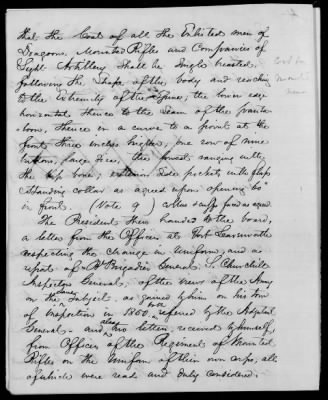 that the Coat of all the Enlisted men of
Dragoons, Mounted Rifles and Companies of
Light Artillery shall be single breasted,
following the shape of the body and reaching
to the extremity of the Spine; the lower edge
horizontal, thence to the seam of the panta-
loon, thence in a curve to a point at the
front three inches higher, one row of nine
buttons, large size, the lowest ranging with
the hip bone; exterior side pockets with flaps
Standing collar as agreed upon opening
in front. (Note 9) collar & cuffs faced as agreed
The President then handed to the board,
a letter from the Officers at Fort Leavenworth
respecting the change in Uniform, and a
report of Bt Brigadier General S. Churchill
Inspector General, of the views of the Army
on the same subject, as gained by him on his tour
of inspection in 1850, referred by the Adjutant
General - and also letters, received by himself,
from Officers of the Regiment of Mounted
Rifles on the Uniform of their own corps, all
of which were read and duly considered.
Coat for
mounted
men